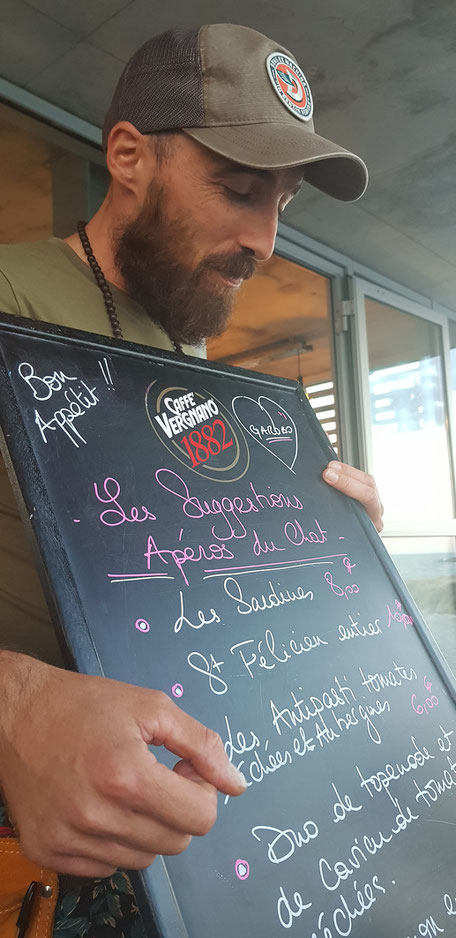 Bon
Appétit !!
CAFFÈ
VERGNANO
1882
GAROBO
- Les Suggestions
Apéros du Chat -
Les Sardines 8,00€
St Félicien entier
des Antipasti tomates
séchées et Aubergines 6,00€
Duo de tapenade et
de Caviar de tomat
séchées.